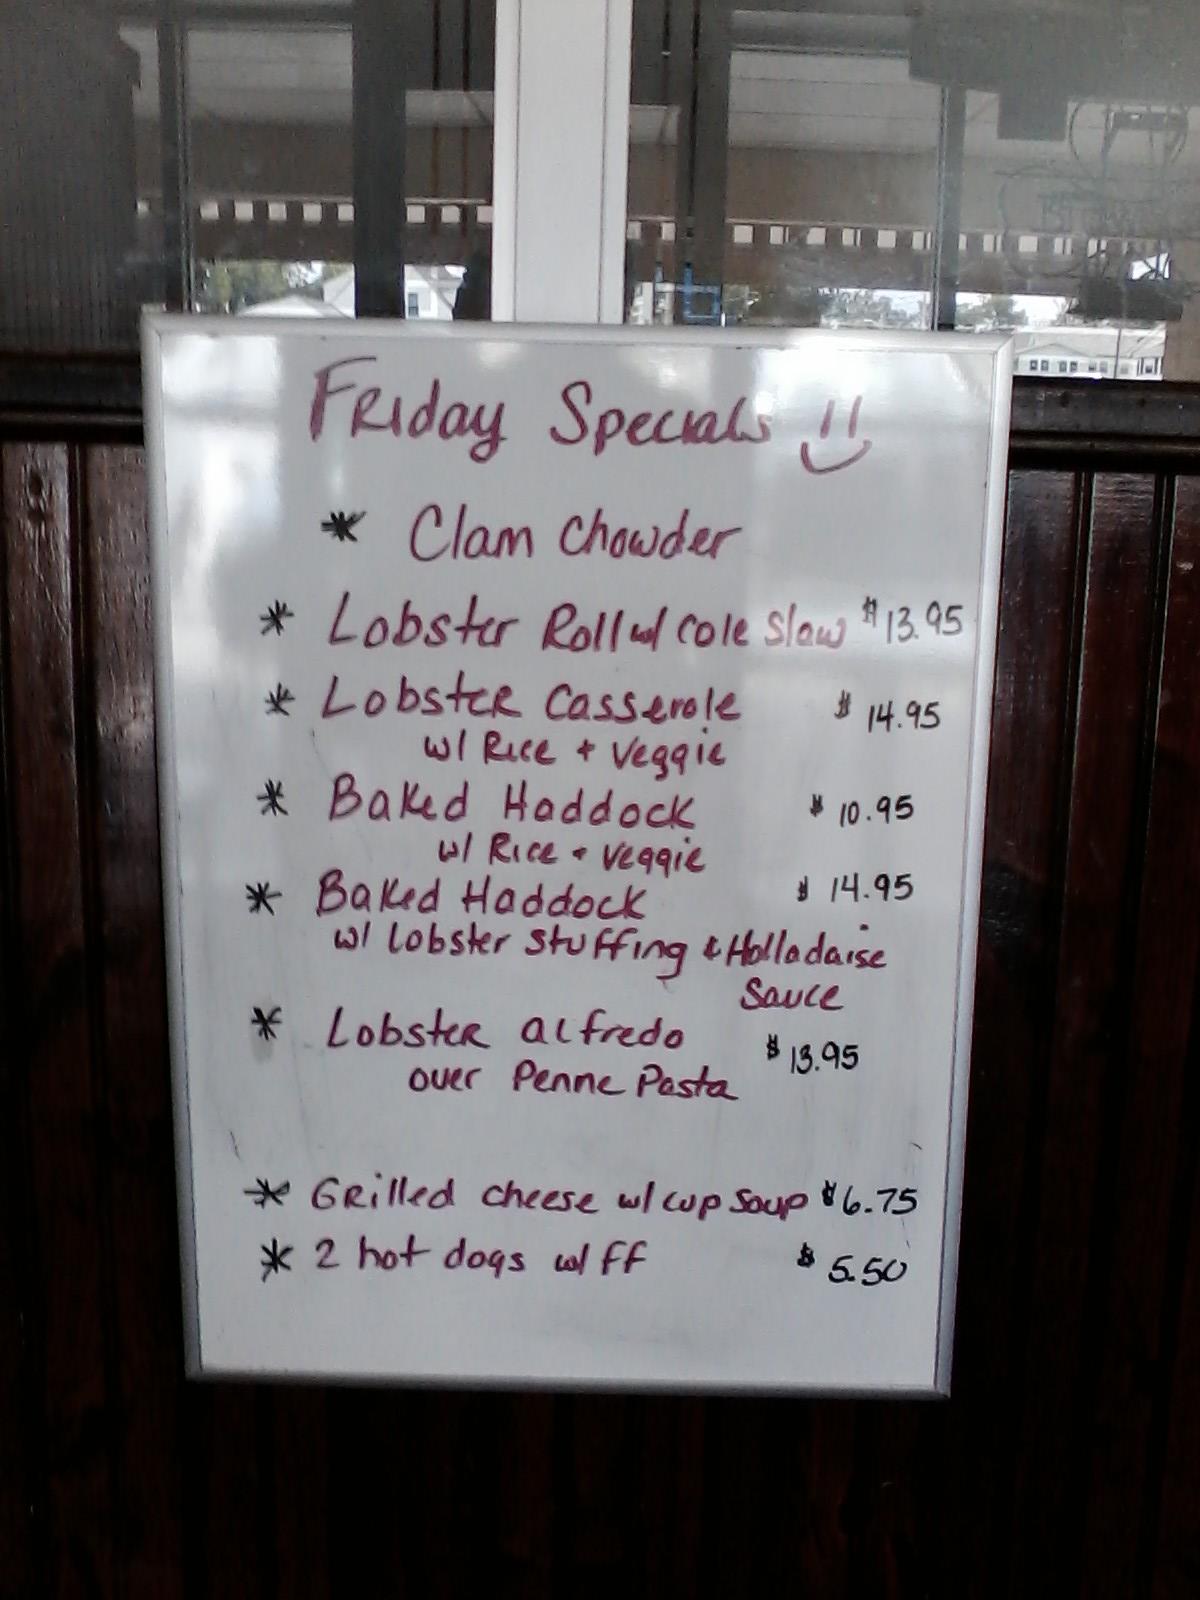 Friday Specals
* Clam Chowder
* Lobster Roll w/ Cole Slaw $13.95
* Lobster Casserole $14.95
w/ Rice + Veggie
* Baked Haddock $10.95
w/ Rice + Veggie
* Baked Haddock $14.95
w/ Lobster Stuffing & Holladaise
Sauce
* Lobster alfredo $13.95
over Penne Pasta
* Grilled cheese w/ cup soup $6.75
* 2 hot dogs w/ ff $5.50